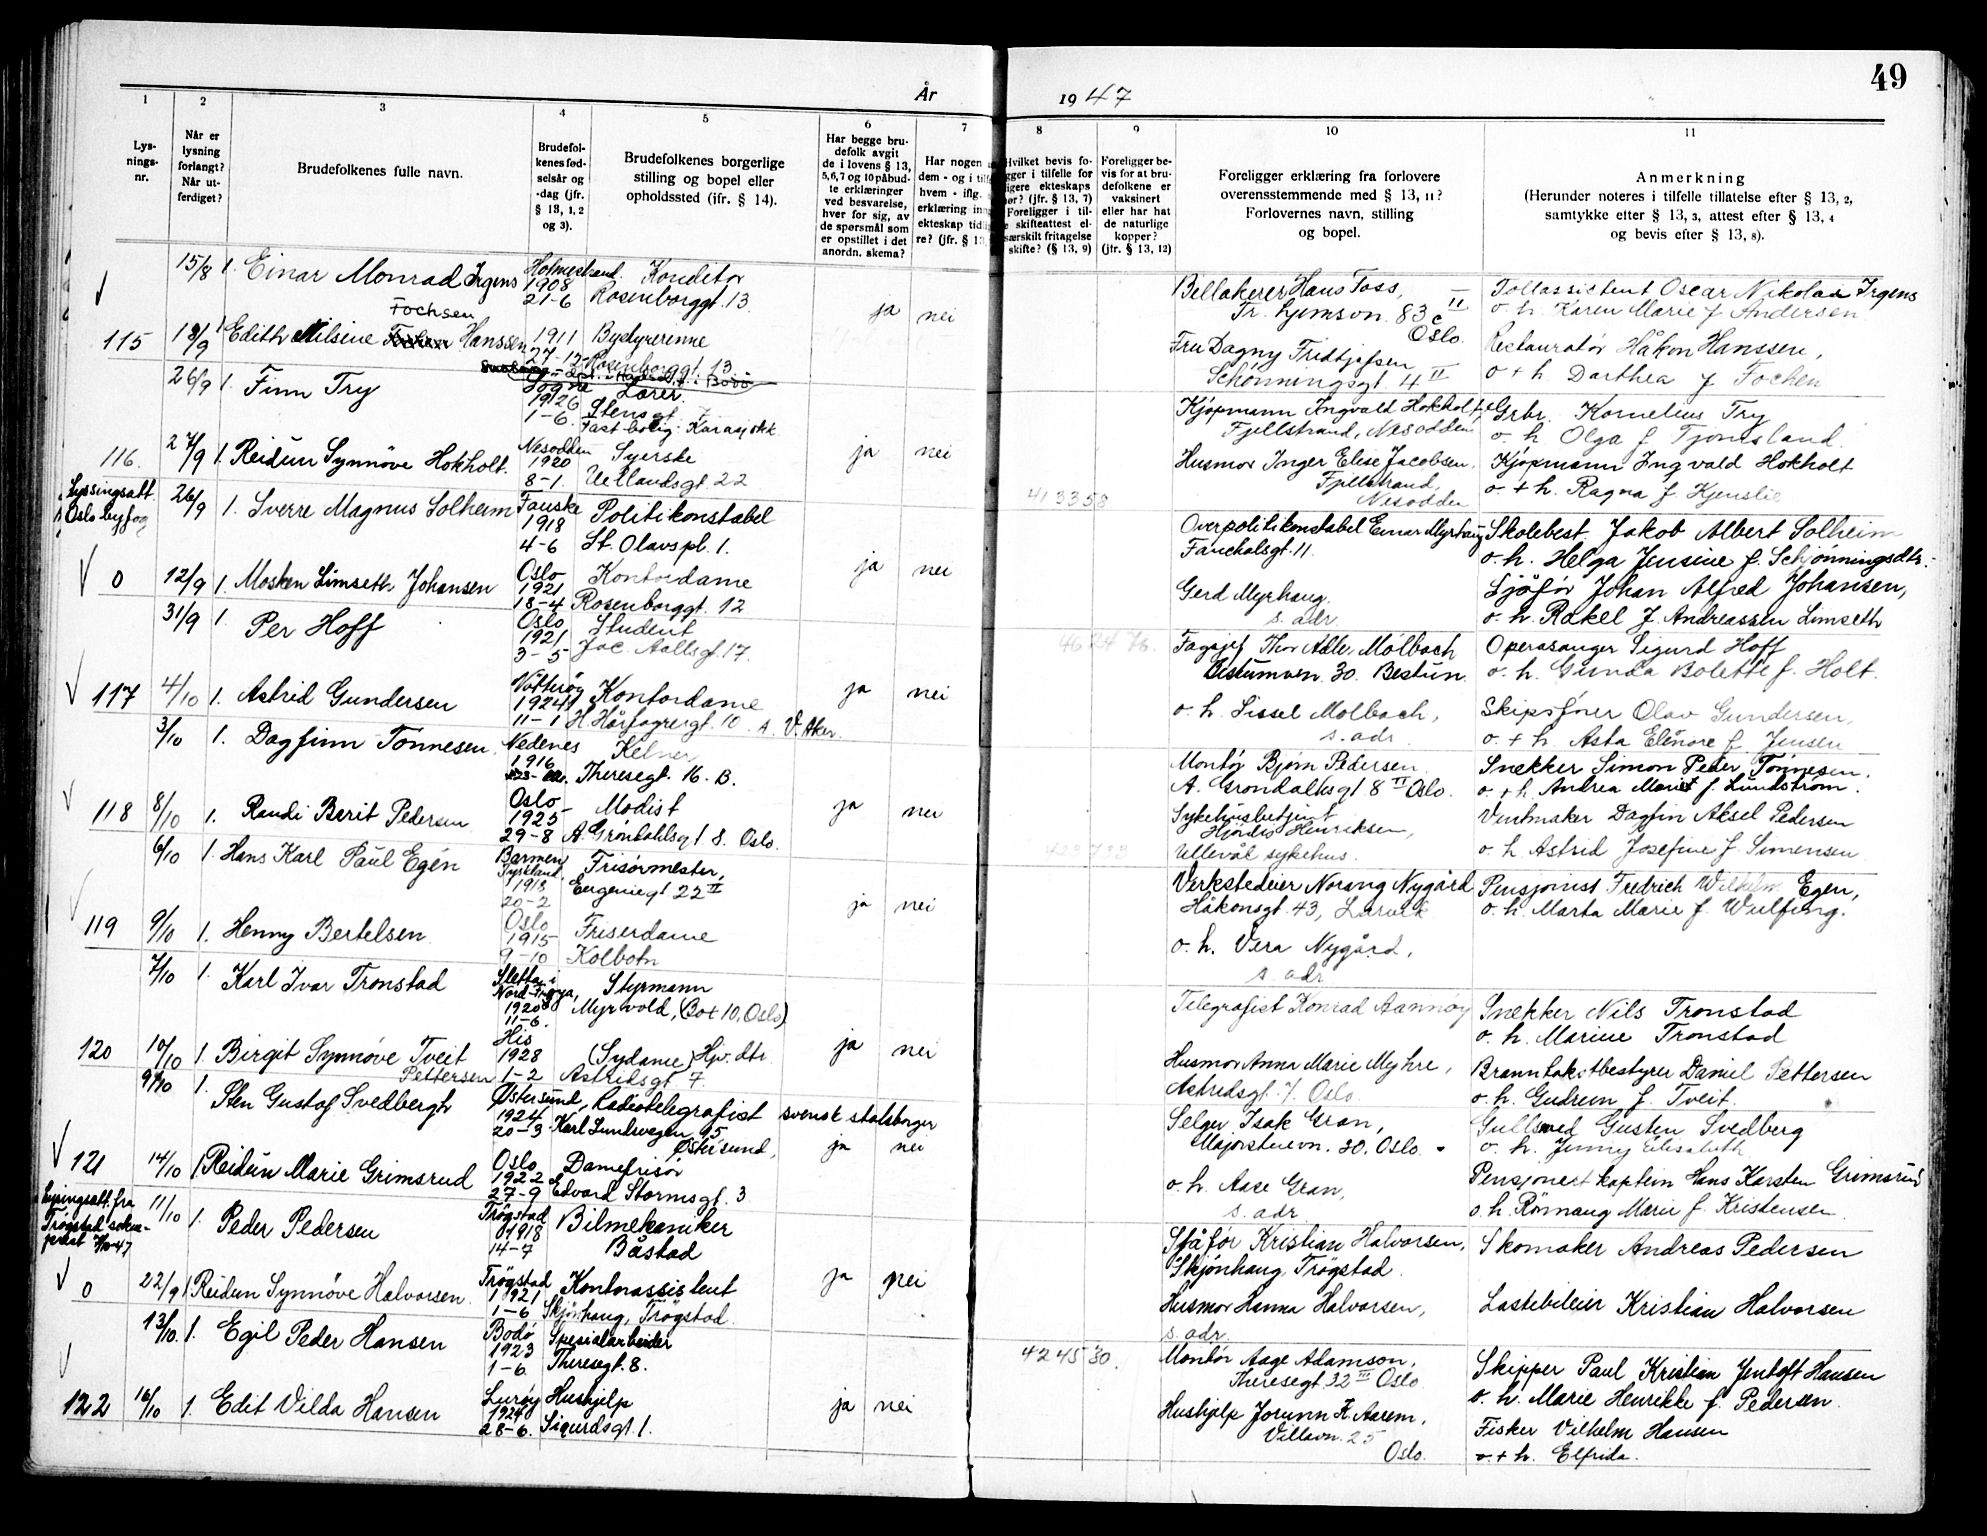 49
År 1947
1 2 3 4 5 6 7 8 9 10 11
Lys-
nings-
nr.
Når er
lysning
forlangt?
Når ut-
ferdiget?
Brudefolkenes fulle navn.
Brudefol-
kenes fød-
selsår og
-dag (jfr.
§ 13, 1, 2
og 3).
Brudefolkenes borgerlige
stilling og bopel eller
opholdssted (jfr. § 14).
Har begge bru-
defolk avgit
de i lovens § 13,
5, 6, 7 og 10 påbud-
te erklæringer
ved besvarelse,
hver for sig, av
de spørsmål som
er opstillet i det
anordn. skema?
Har nogen
dem - og i tilf
hvem - iflg.
erklæring inn
ekteskap tidl
re? (jfr. § 13,
Hvilket bevis fo-
gger i tilfelle for
igere ekteskaps
hør? (jfr. § 13, 7)
Foreligger i til-
e skifteattest el-
særskilt fritagelse
skifte? (§ 13, 9)
Foreligger be-
vis for at bru-
defolkene er
vaksinert
eller har hat
de naturlige
kopper?
(jfr. § 13, 12)
Foreligger erklæring fra forlovere
overensstemmende med § 13, 11?
Forlovernes navn, stilling
og bopel.
Anmerkning
(Herunder noteres i tilfelle tillatelse efter § 13, 2,
samtykke efter § 13, 3, attest efter § 13, 4
og bevis efter § 13, 8).
15/8 1. Einar Monrad Irgens Holmestrand 1908 21-6 Konditor Rosenborggt. 13 ja nei
Billakerer Hans Foss, Tr. Hjemsvn. 83 c II Oslo
Tollassistent Oscar Nikolai Irgens
o. h. Karen Marie f. Andersen
115 18/9 1 Edith Nilsine Fochsen Hanssen 1911 27-12 Bestyrerinne Rosenborggt. 13
Fru Dagny Fridtjofsen Schønningsgt. 4 II
Restauratør Håkon Hanssen,
o + h Dorthea f Fochen
26/9 1. Finn Try Sogne 1926 1-6 Lærer. Stensgt. 7 Fast bolig: Karasjokk
Kjøpmann Ingvald Hokholt, Fjellstrand, Nesodden
Grbr. Kornelius Try
o. h. Olga f Tjomsland
116. 27/9 1. Reidun Synnøve Hokholt. Nesodden 1920 8-1. Syerske Uellandsgt. 22 ja nei
Husmor Inger Elise Jacobsen, Fjellstrand, Nesodden
Kjøpmann Ingvald Hokholt
o. + h. Ragna f. Kjenslie
413358
Lysningsatt.
Oslo byfog
26/9 1. Sverre Magnus Solheim Fauske 1918 4-6 Politikonstabel St. Olavspl. 1.
Overpolitikonstabel Einar Myrhaug Fauchalsgt. 11.
Skolebest. Jakob Albert Solheim
o. h. Helga Jensine f. Schjønningsdtr.
0 12/9 1. Mosken Limseth Johansen Oslo 1921 18-4 Kontordame Rosenborggt. 12 ja nei
Gerd Myrhaug, s. adr.
Sjåfør Johan Alfred Johansen,
o. h. Rakel f. Andreassen Limseth
31/9 1. Per Hoff Oslo 1921 3-5 Student Jac. Aallsgt. 17.
Fagsjef Thor Adler Mølbach Bestumvn. 30. Bestun
Operasanger Sigurd Hoff
o. h. Gunda Bolette f. Holt.
117 4/10 1. Astrid Gundersen Nøtterøy 1924 11-1 Kontordame H Hårfagresgt. 10. A. V. Aker. ja nei
o. h. Sissel Mølbach, s. adr.
Skipsfører Olav Gundersen,
o. + h. Asta Elinore f Jensen
3/10 1. Dagfinn Tønnesen Nedenes 1916 Kelner Theresegt. 16. B.
Montør Bjørn Pedersen A. Grøndahlsgt 8 II Oslo.
Snekker Simon Peder Tønnesen.
o. + h. Andrea Marie f. Lundstrøm.
118 8/10 1. Randi Berit Pedersen Oslo 1925 29-8 Modist A. Grøndahlsgt 8. Oslo. ja nei
Sykehusbetjent Hjördis Henriksen, Ullevål sykehus.
Ventmaker Dagfin Aksel Pedersen
o. h Astrid Josefine f. Simensen
6/10 1. Hans Karl Paul Egén Barmen Tyskland 1913 20-2 Frisörmester, Eugeniegt 22 II
Verkstedeier Norang Nygård Håkonsgt. 43, Larvik
Pensjonist Fredrich Wilhelm Egen,
o. h. Marta Marie f. Wulfing.
119 9/10 1. Henny Bertelsen Oslo 1915 9-10 Friserdame Kolbotn ja nei
o. h. Vera Nygård, s. adr
7/10 1. Karl Ivar Tronstad Sletta i Nord-Frøya, 1920 11-6. Styrmann Myrvold, (Bot 10, Oslo)
Telegrafist Konrad Aannøy
Snekker Nils Tronstad
o. h. Marine Tronstad
120 10/10 1. Birgit Synnøve Tveit Pettersen His 1928 1-2 (Sydame) Hjv. dtr. Astridsgt 7. ja nei
Husmor Anna Marie Myhre, Astridsgt. 7. Oslo
Branntakstbestyrer Daniel Pettersen
o. h. Gudrun f. Tveit.
9/10 1. Sten Gustaf Svedbergh Østersund, 1924 20-3 Radiotelegrafist Karl Lundsvegen 15 Østersund, svensk statsborger
Selger Isak Gran, Majorstuevn. 30. Oslo.
Gullsmed Gusten Svedberg
o. h. Jenny Elisabeth
121 14/10 1 Reidun Marie Grimsrud Oslo 1922 27-9 Damefrisør Edvard Stormsgt. 3 ja nei
o. h. Aase Gran, s. adr
Pensjonert kaptein Hans Karsten Grimsrud
o. h. Rönnaug Marie f. Kristensen
Lysingsatt. fra
Trøgstad sokne-
prest
11/10 1. Peder Pedersen Trøgstad 1918 14-7 Bilmekaniker Båstad
Sjåfør Kristian Halvorsen, Skjønhaug, Trøgstad.
Skomaker Andreas Pedersen
0 22/9 1 Reidun Synnøve Halvorsen. Trøgstad 1921 1-6 Kontorassistent Skjønhaug, Trøgstad. ja nei
Husmor Hanna Halvorsen, s. adr.
Lastebileier Kristian Halvorsen
13/10. 1. Egil Peder Hansen Bodø 1923 1-6. Spesialarbeider Theresegt. 8.
424530.
Montør Aage Adamson, Theresegt 32 III Oslo
Skipper Paul Kristian Jentoft Hansen
o. h. Marie Henrikke f. Pedersen.
122 16/10 1. Edit Vilda Hansen Lurøy 1924 28-6. Hushjelp Sigurdsgt. 1. ja nei
Hushjelp Jorunn K. Aarem, Villavn. 25 Oslo.
Fisker Vilhelm Hansen
o. + h. Elfrida.